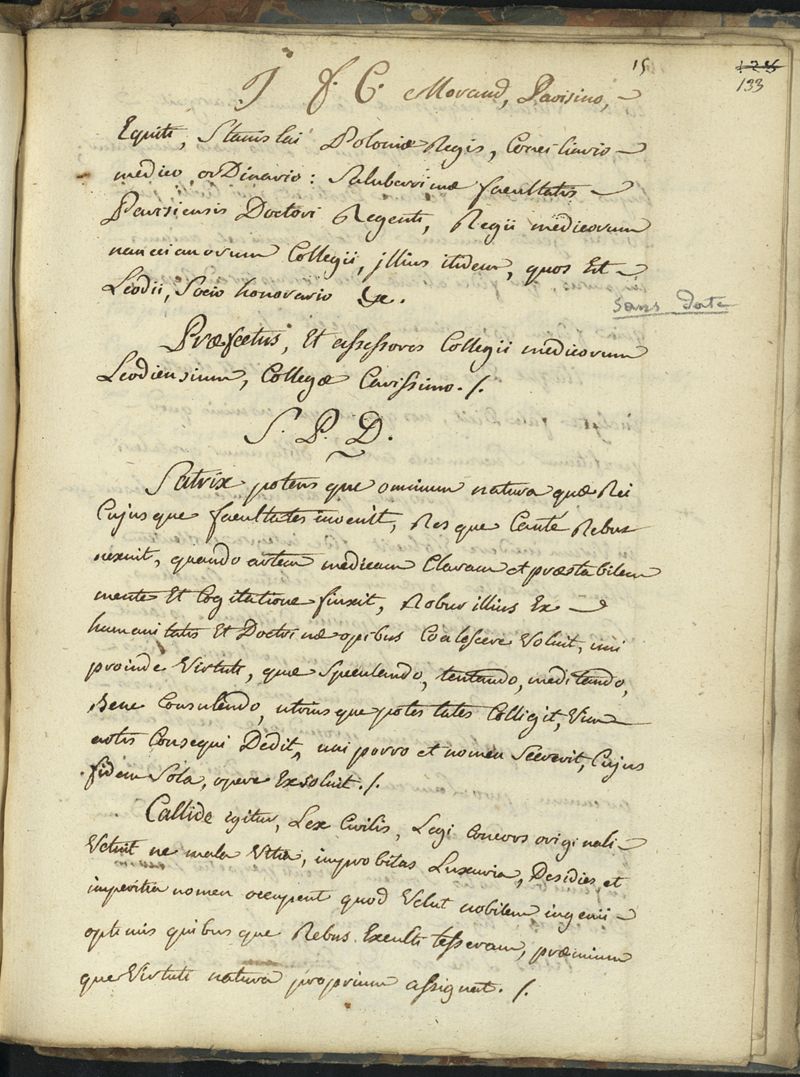 15
125
133
J. f. C. Morand, Parisino,
Equiti, Stanislai Poloniæ Regis, Consiliario
medico ordinario: Saluberrimæ facultatis
Parisiensis Doctori Regenti, Regii medicorum
nanceianorum Collegii, jllius itidem, quos Et
Leodii, Socio honorario &c.
sans date
Præfectus, Et assessores Collegii medicorum
Leodiensium, Collegæ Carissimo./.
S. P. D.
Satrix potens que ominum natura quæ Rei
Cujus que facultates invenit, Res que Cauté Rebus
nexuit, quando artem medicam Claram et præstabilem
mente Et Cogitatione finxit, Robur illius Ex
humanitatis Et Doctrinæ opibus Coalescere Voluit, uni
proinde Virtuti, quæ Speculando, tentando, meditando,
Bene Consulendo, utrius que potestates Colligit, Vim
artis Consequi Dedit, uni porro et nomen Screvit, Cujus
fidem Sola, opere Exsoluit./.
Callide igitur, Lex Civilis, Legi Concors originali
Vetuit ne mala Vitia, improbitas Luxuria, Desidies et
imperitia nomen occupent quod Velut nobilem ingenii
optimis quibus que Rebus Exculti tesseram, præmium
que Virtuti natura proprium assignat./.